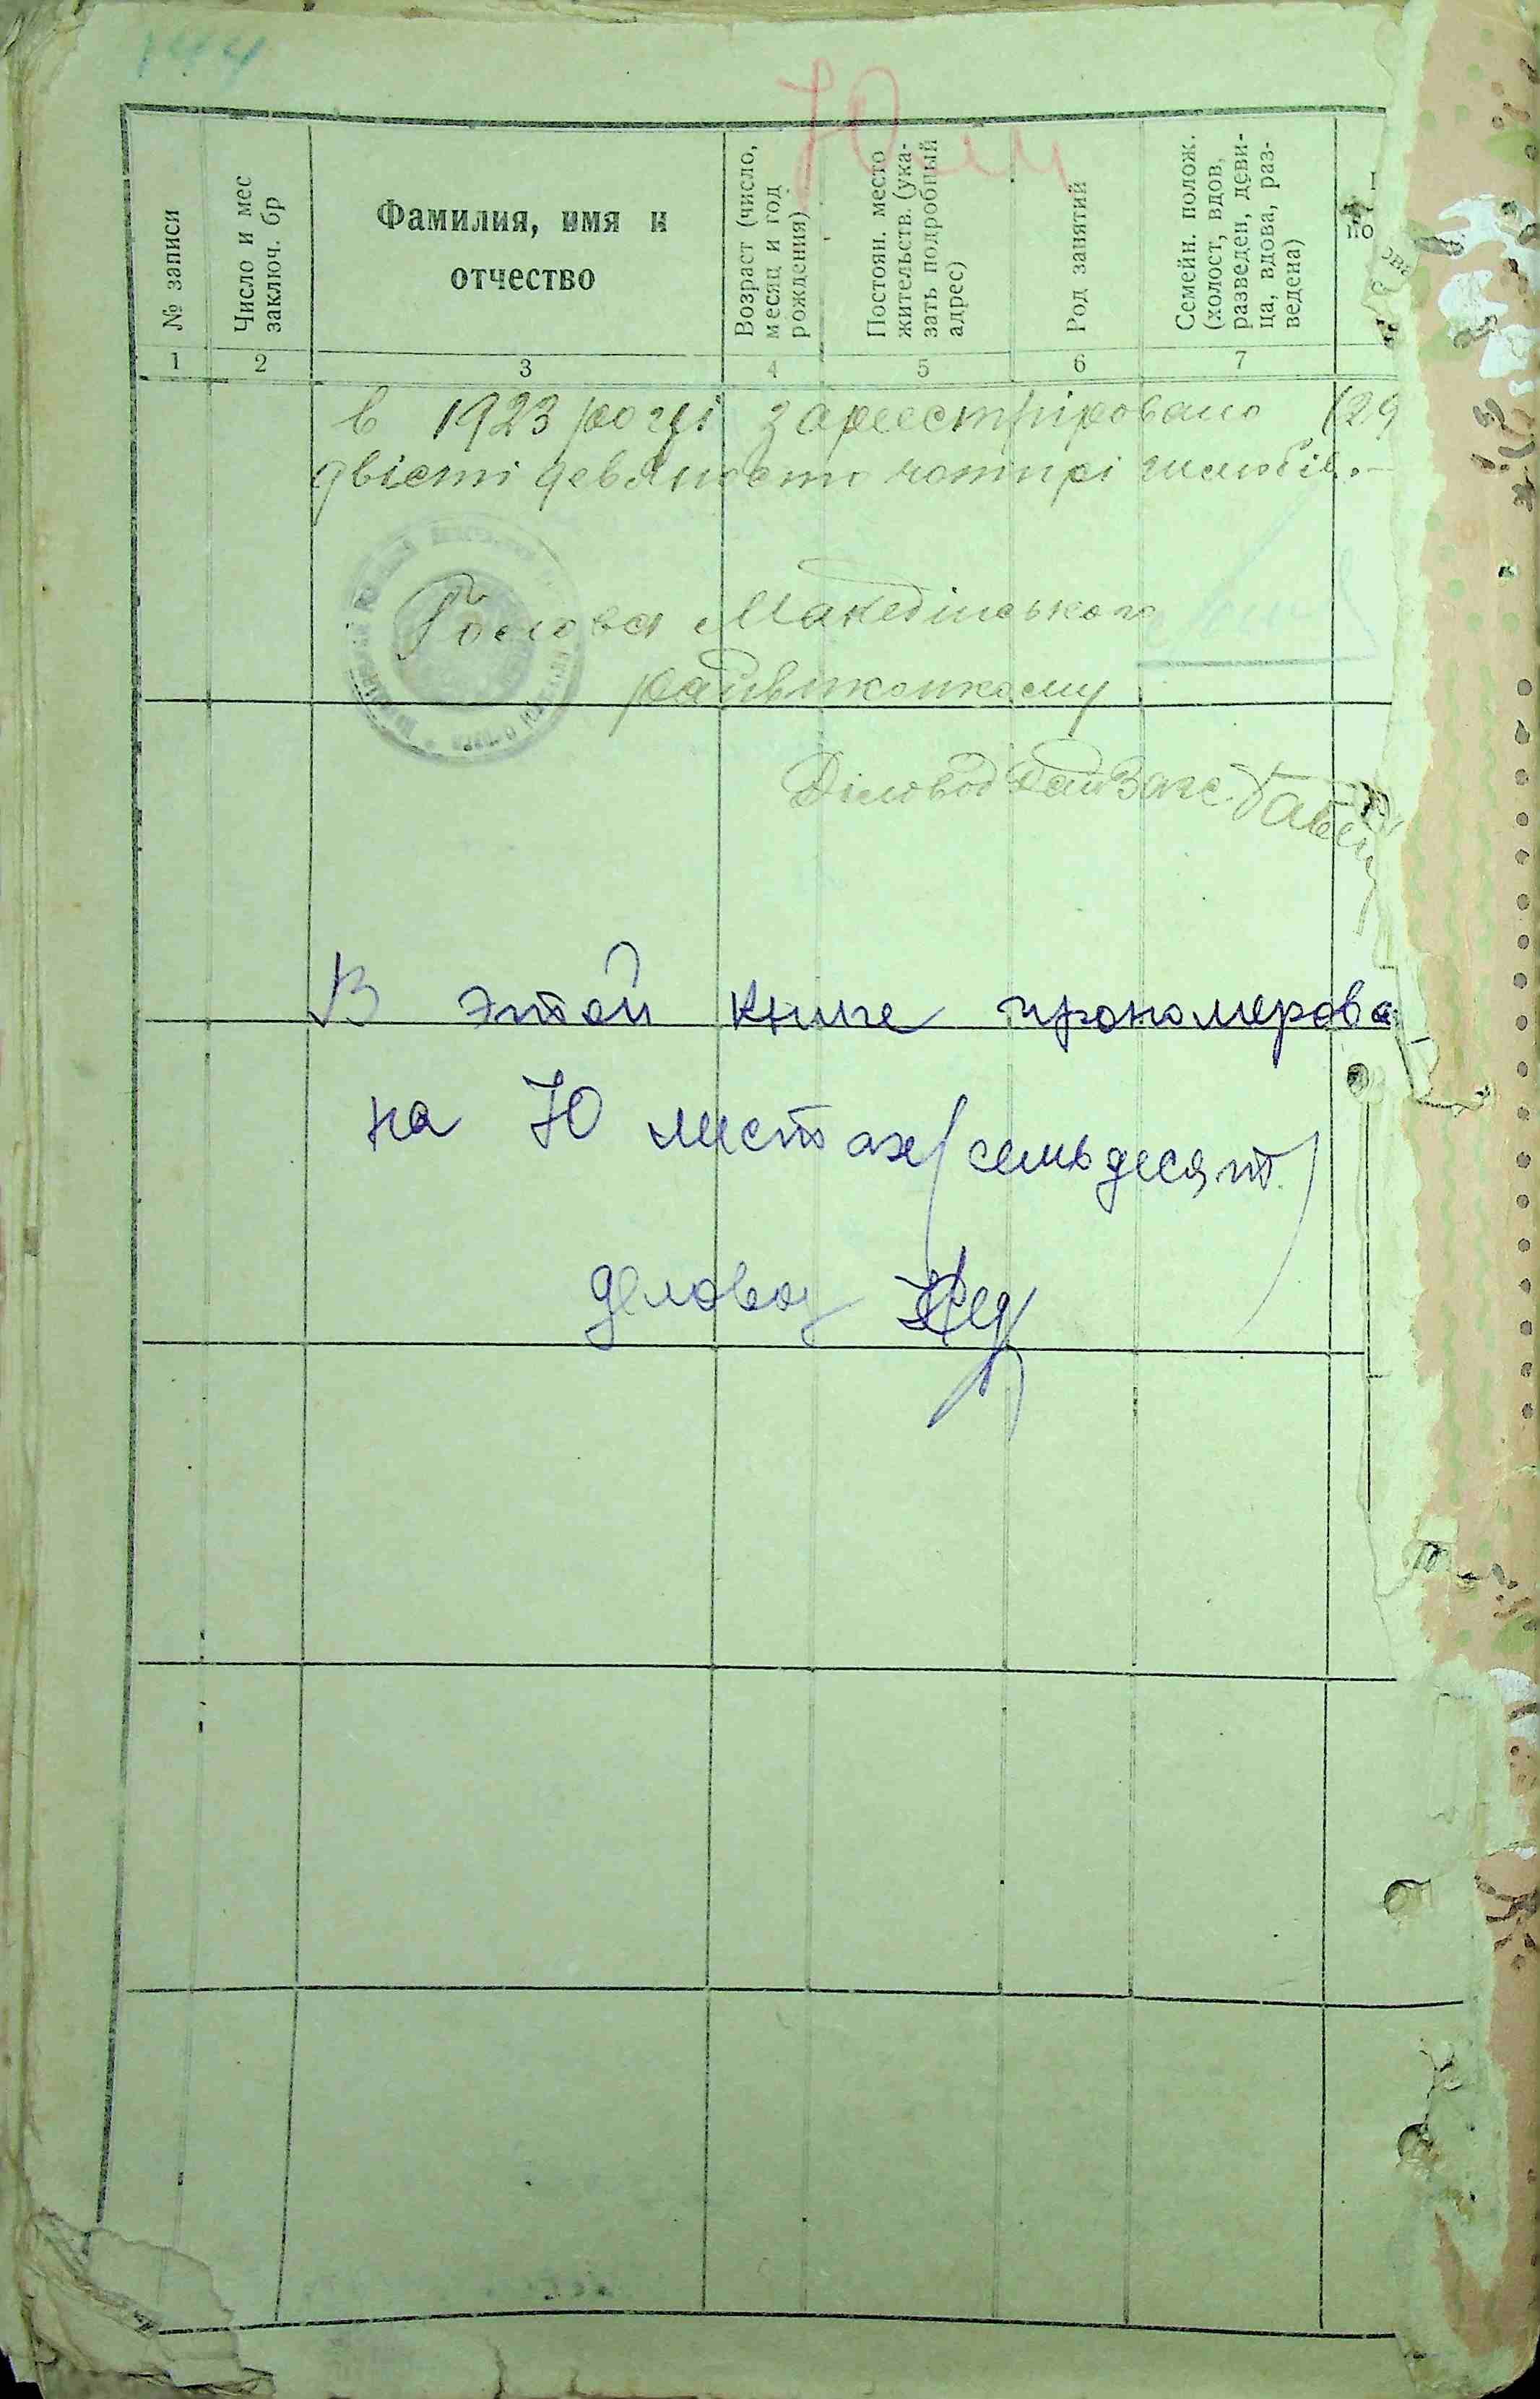 144
70 л
№ записи
Число и мес
заключ. бр
Фамилия, имя и
отчество
Возраст (число,
месяц и год
рождения)
Постоян. место
жительств. (ука-
зать подробный
адрес)
Род занятий
Семейн. полож.
(холост, вдов,
разведен, деви-
ца, вдова, раз-
ведена)
по
1 2 3 4 5 6 7
в 1923 році зареєстріровано (29
двісті девяносто чотирі шлюбів.-
Голова Македінського
райвиконкому
Діловод РайЗагс
В этой книге прономерова
на 70 листах (семьдесят)
деловод